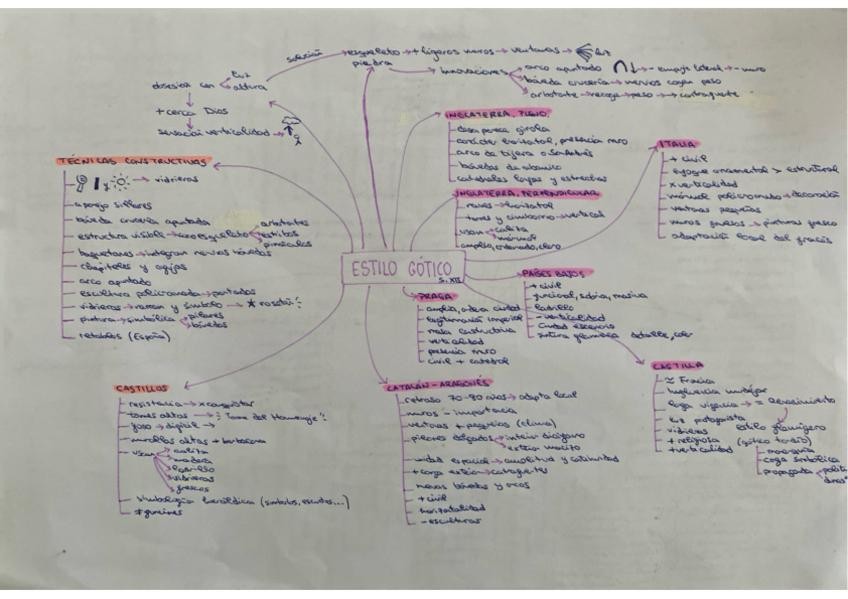 solución → esqueleto → + ligeros muros → ventanas → luz
piedra
obsesión con luz
altura
+ cerca Dios
sensación verticalidad →
innovaciones
arco apuntado → - empuje lateral → - muro
bóveda crucería → nervios cargan peso
arbotante → recoge → peso → → contrafuerte
TÉCNICAS CONSTRUCTIVAS
y → vidrieras
aparejo sillares
bóveda crucería apuntada
estructura visible → arcoesqueleto
arbotantes
estribos
pináculos
baquetones → integran nervios bóvedas
chapiteles y agujas
arco apuntado
escultura policromada → portadas
vidrieras → razón y símbolo → rosetón
pintura → simbólica
pilares
bóvedas
retablos (España)
INGLATERRA. PLENO.
carácter horizontal, presencia muro
arco de tijera o San Andrés
bóvedas de abanico
catedrales largas y estrechas
INGLATERRA. PERPENDICULAR
naves → horizontal
torres y cimborrio → vertical
usan
caliza
mármol
amplio, ordenado, claro
ITALIA
+ civil
enfoque ornamental > estructural
x verticalidad
mármol policromado → decoración
ventanas pequeñas
muros gruesos → pinturas fresco
adaptación local del francés
ESTILO GÓTICO
S. XII
PRAGA
legitimación imperial
verticalidad
presencia muro
civil + catedral
PAÍSES BAJOS
+ civil
funcional, sobria, masiva
ladrillo
- verticalidad
ciudad escenario
pintura flamenca detalle, color
CASTILLA
≈ Francia
influencia mudéjar
larga vigencia → = Renacimiento
luz protagonista
estilo flamígero
vidrieras
(gótico tardío)
+ religiosa
+ verticalidad
monarquía
carga simbólica
propaganda
CASTILLOS
resistencia → x conquistar
torres altas → "Torre del Homenaje"
foso →
murallas altas + barbacana
usan
caliza
madera
ladrillo
vidrieras
frescos
simbología heráldica (símbolos, escudos...)
≠ funciones
CATALÁN-ARAGONÉS
retraso 70-80 años → adapta local
muros - importancia
ventanas + pequeñas (clima)
pilares delgados → interior diáfano
exterior macizo
unidad espacial → amplitud y continuidad
+ carga exterior → contrafuertes
+ civil
horizontalidad
- esculturas